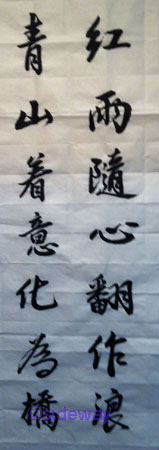 红雨隨心翻作浪
青山着意化為橋
©sideway